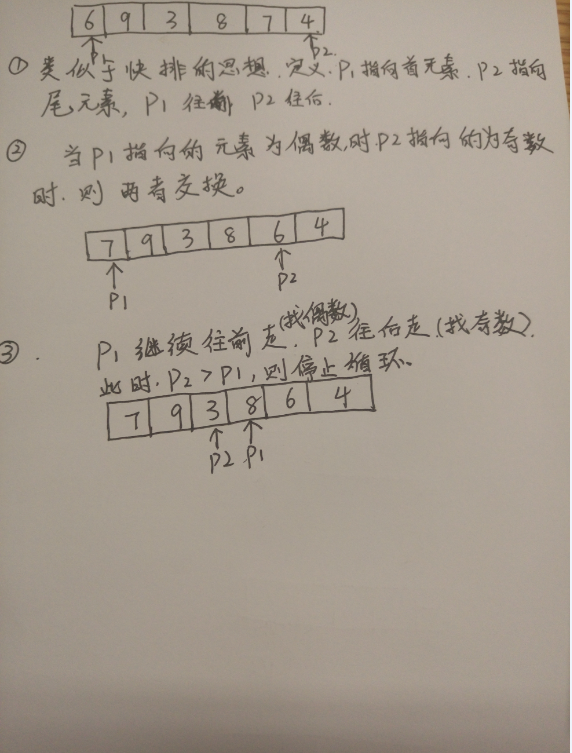 6 9 3 8 7 4
P1 P2
① 类似于快排的思想.定义.P1指向首元素.P2指向
尾元素, P1往前 P2往后.
② 当P1指向的元素为偶数,时.P2指向的为奇数
时.则两者交换。
7 9 3 8 6 4
P1 P2
(找偶数)
③. P1继续往前走.P2往后走.(找奇数).
此时.P2>P1,则停止循环.
7 9 3 8 6 4
P2 P1